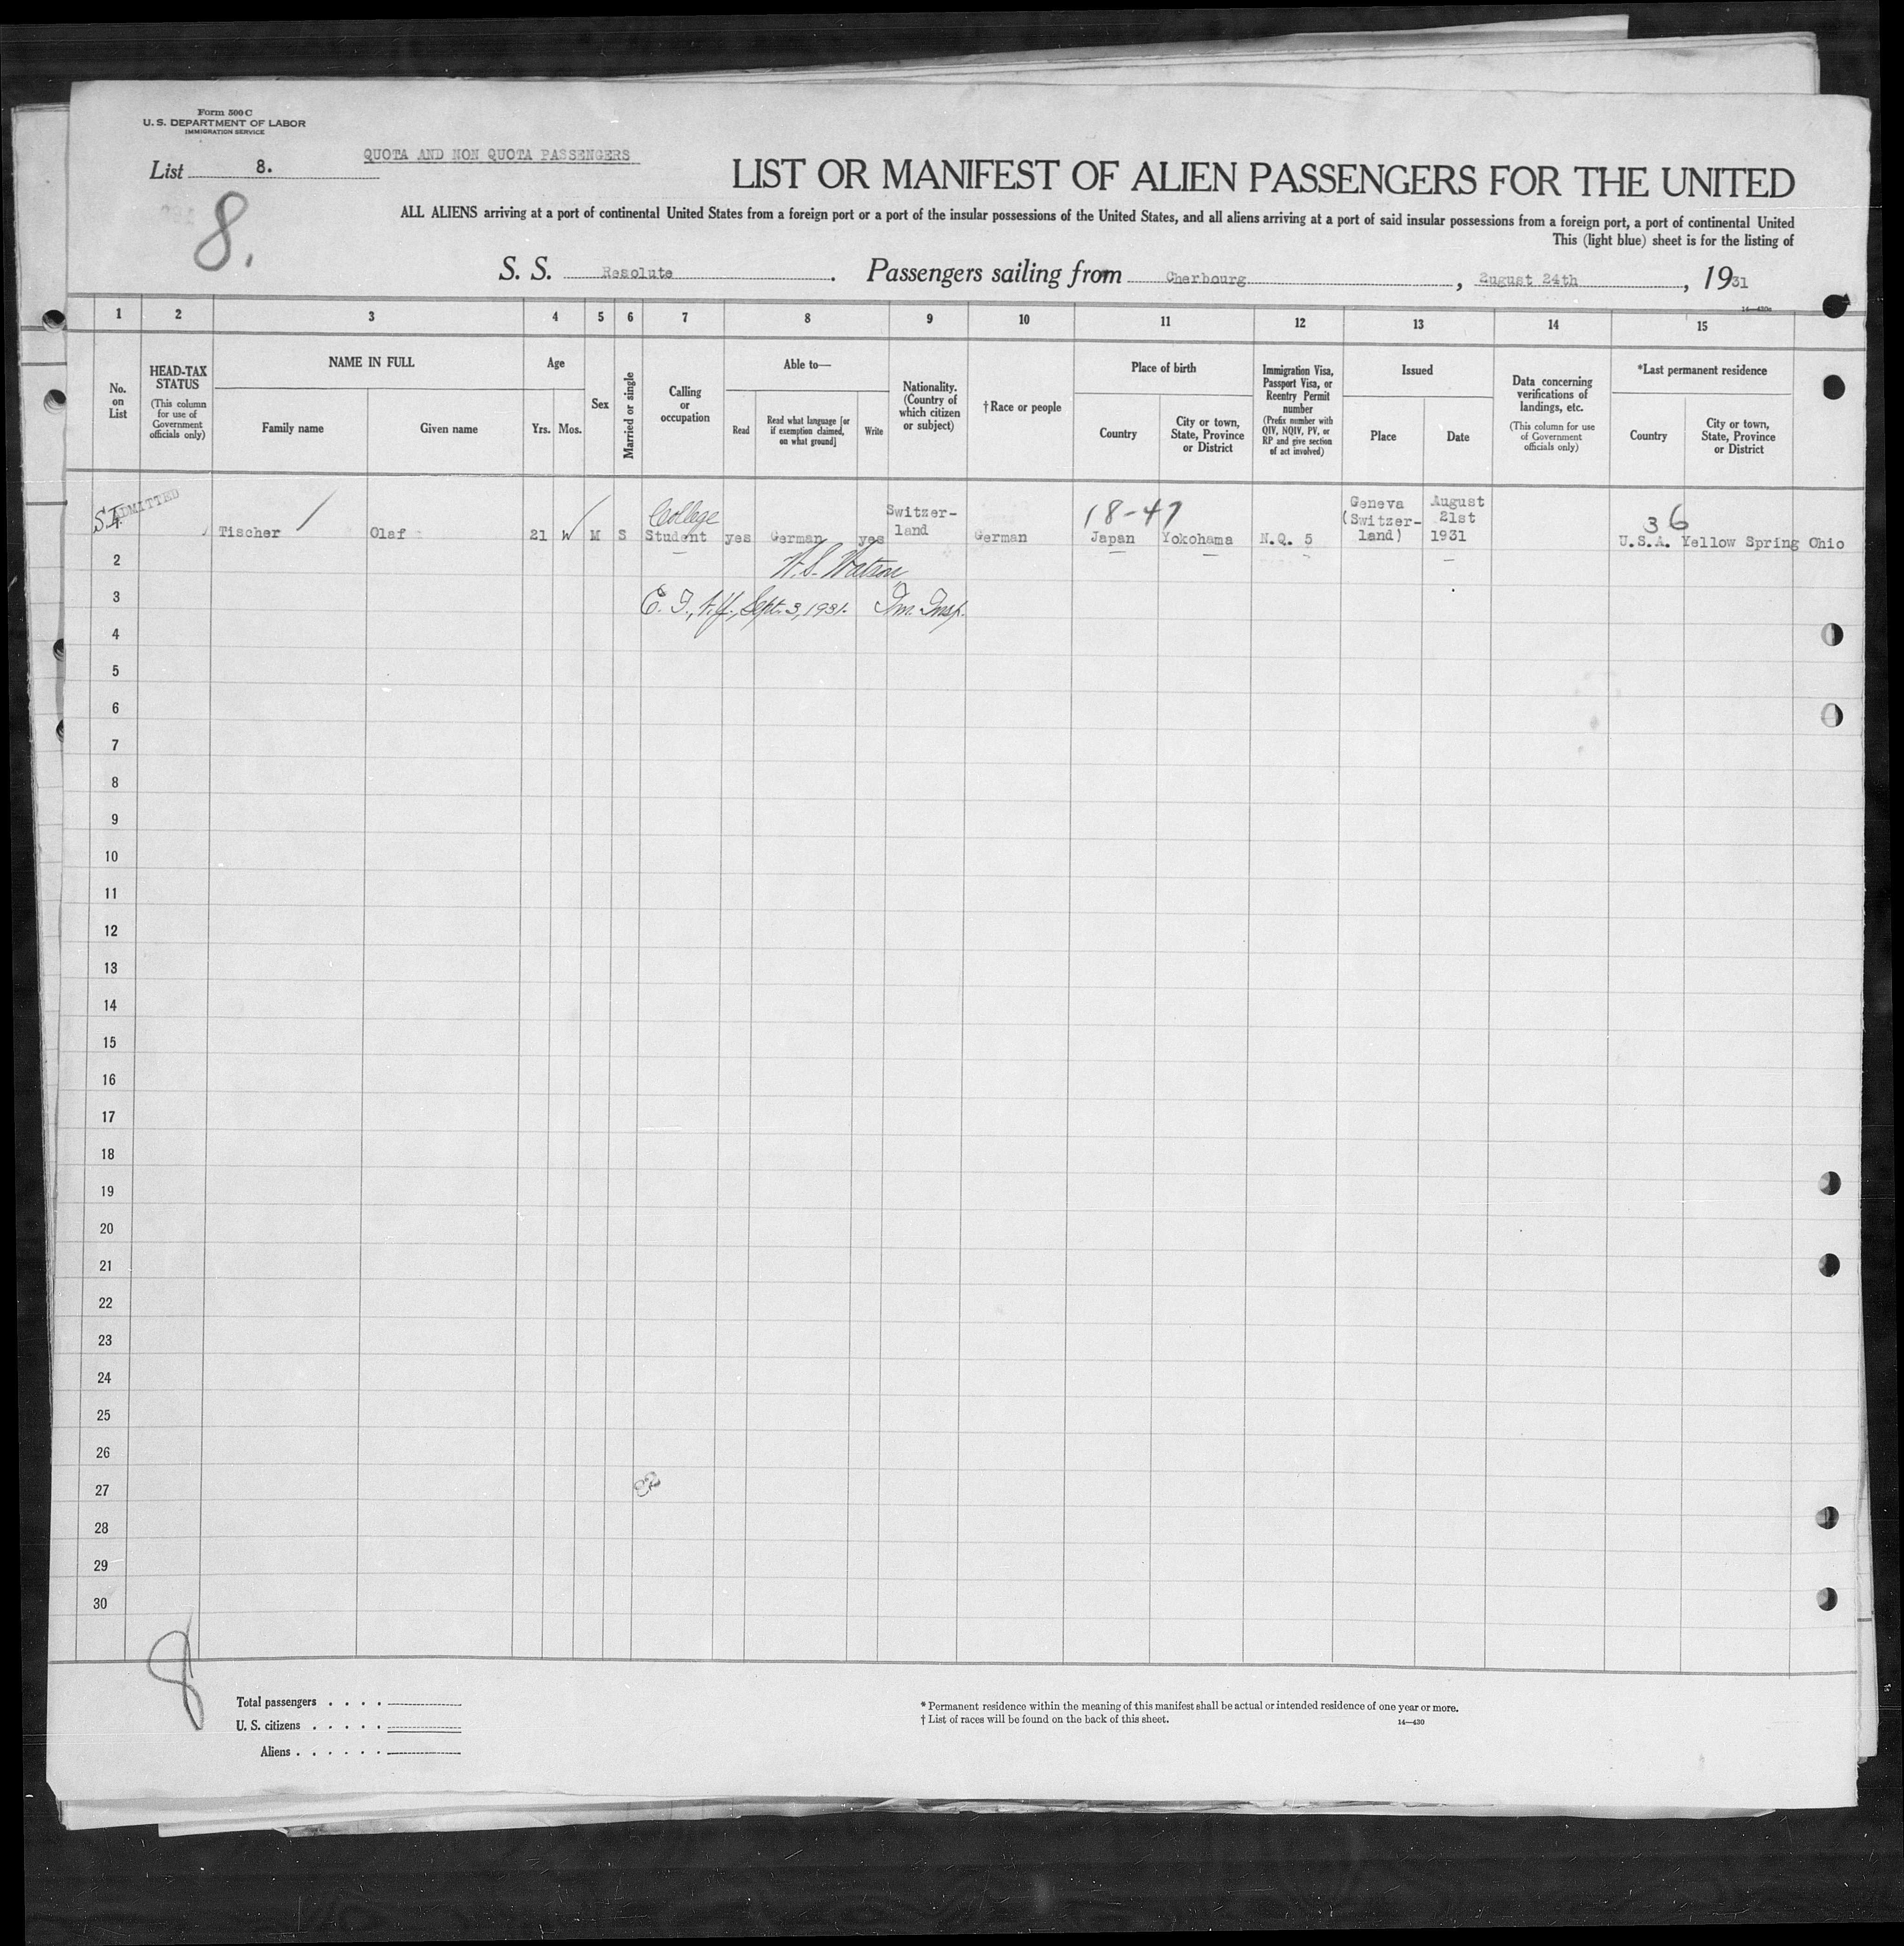 Form 500 C
U. S. DEPARTMENT OF LABOR
IMMIGRATION SERVICE
List 8.
QUOTA AND NON QUOTA PASSENGERS
8.
LIST OR MANIFEST OF ALIEN PASSENGERS FOR THE UNITED
ALL ALIENS arriving at a port of continental United States from a foreign port or a port of the insular possessions of the United States, and all aliens arriving at a port of said insular possessions from a foreign port, a port of continental United
This (light blue) sheet is for the listing of
S. S. Resolute . Passengers sailing from Cherbourg , August 24th , 1931
1 2 3 4 5 6 7 8 9 10 11 12 13 14 15
No. on List
HEAD-TAX STATUS
(This column for use of Government officials only)
NAME IN FULL
Family name
Given name
Age
Yrs.
Mos.
Sex
Married or single
Calling or occupation
Able to—
Read
Read what language [or if exemption claimed, on what ground]
Write
Nationality. (Country of which citizen or subject)
† Race or people
Place of birth
Country
City or town, State, Province or District
Immigration Visa, Passport Visa, or Reentry Permit number
(Prefix number with QIV, NQIV, PV, or RP and give section of act involved)
Issued
Place
Date
Data concerning verifications of landings, etc.
(This column for use of Government officials only)
*Last permanent residence
Country
City or town, State, Province or District
ADMITTED
Tischer
Olaf
21
M
S
College
Student
yes
German
yes
Switzer-
land
German
18-47
Japan
Yokohama
N.Q. 5
Geneva
(Switzer-
land)
August
21st
1931
36
U.S.A. Yellow Spring Ohio
2
W.S. Watson
3
Sept. 3, 1931. Im. Insp.
4
5
6
7
8
9
10
11
12
13
14
15
16
17
18
19
20
21
22
23
24
25
26
27
28
29
30
8
Total passengers . . . .
U. S. citizens . . . . .
Aliens . . . . . .
* Permanent residence within the meaning of this manifest shall be actual or intended residence of one year or more.
† List of races will be found on the back of this sheet.
14—430